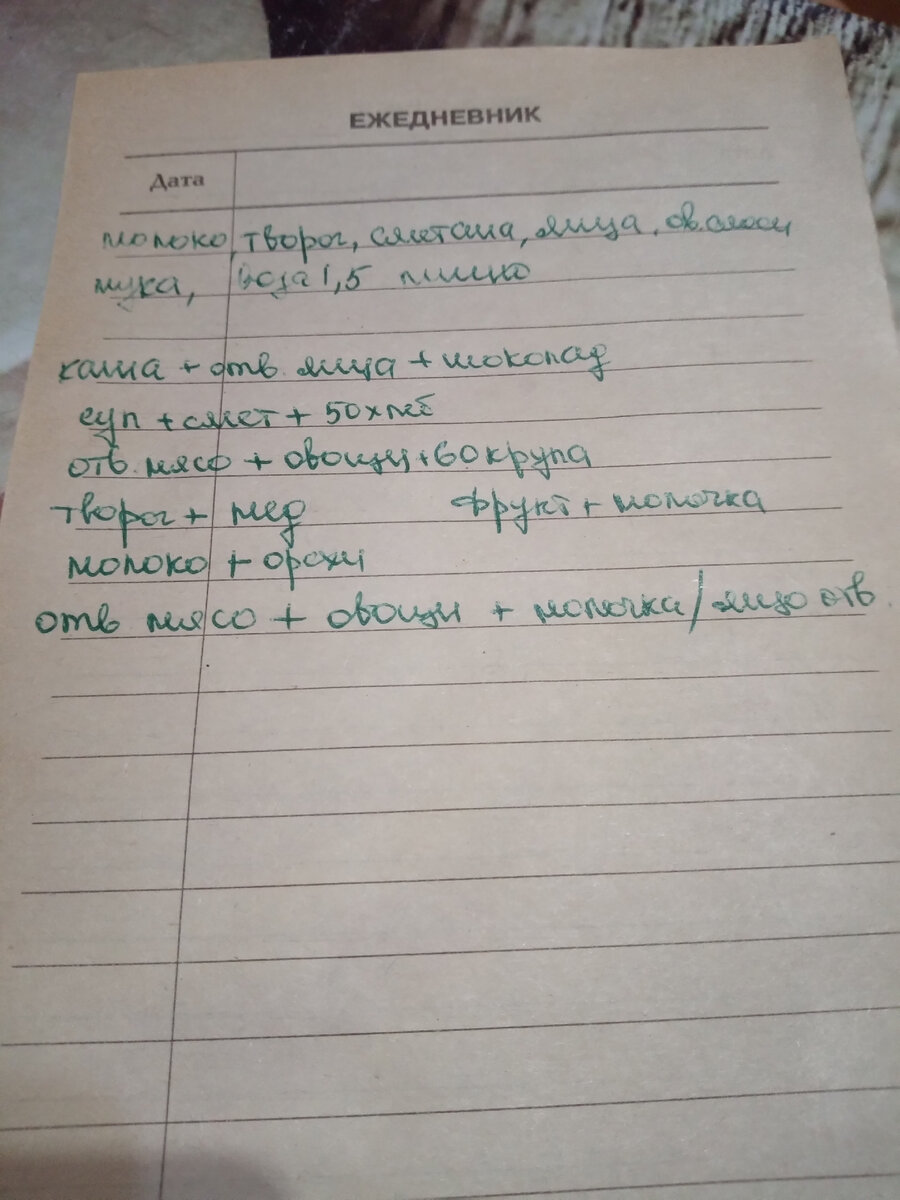 ЕЖЕДНЕВНИК
Дата
молоко, творог, сметана, яйца, ов.смеси
мука, 1,5 пшено
каша + отв. яйца + шоколад
суп + смет + 50 хлеб
отв. мясо + овощи + 60 крупа
творог + мед фрукт + молочка
молоко + орехи
отв мясо + овощи + молочка / яйцо отв.